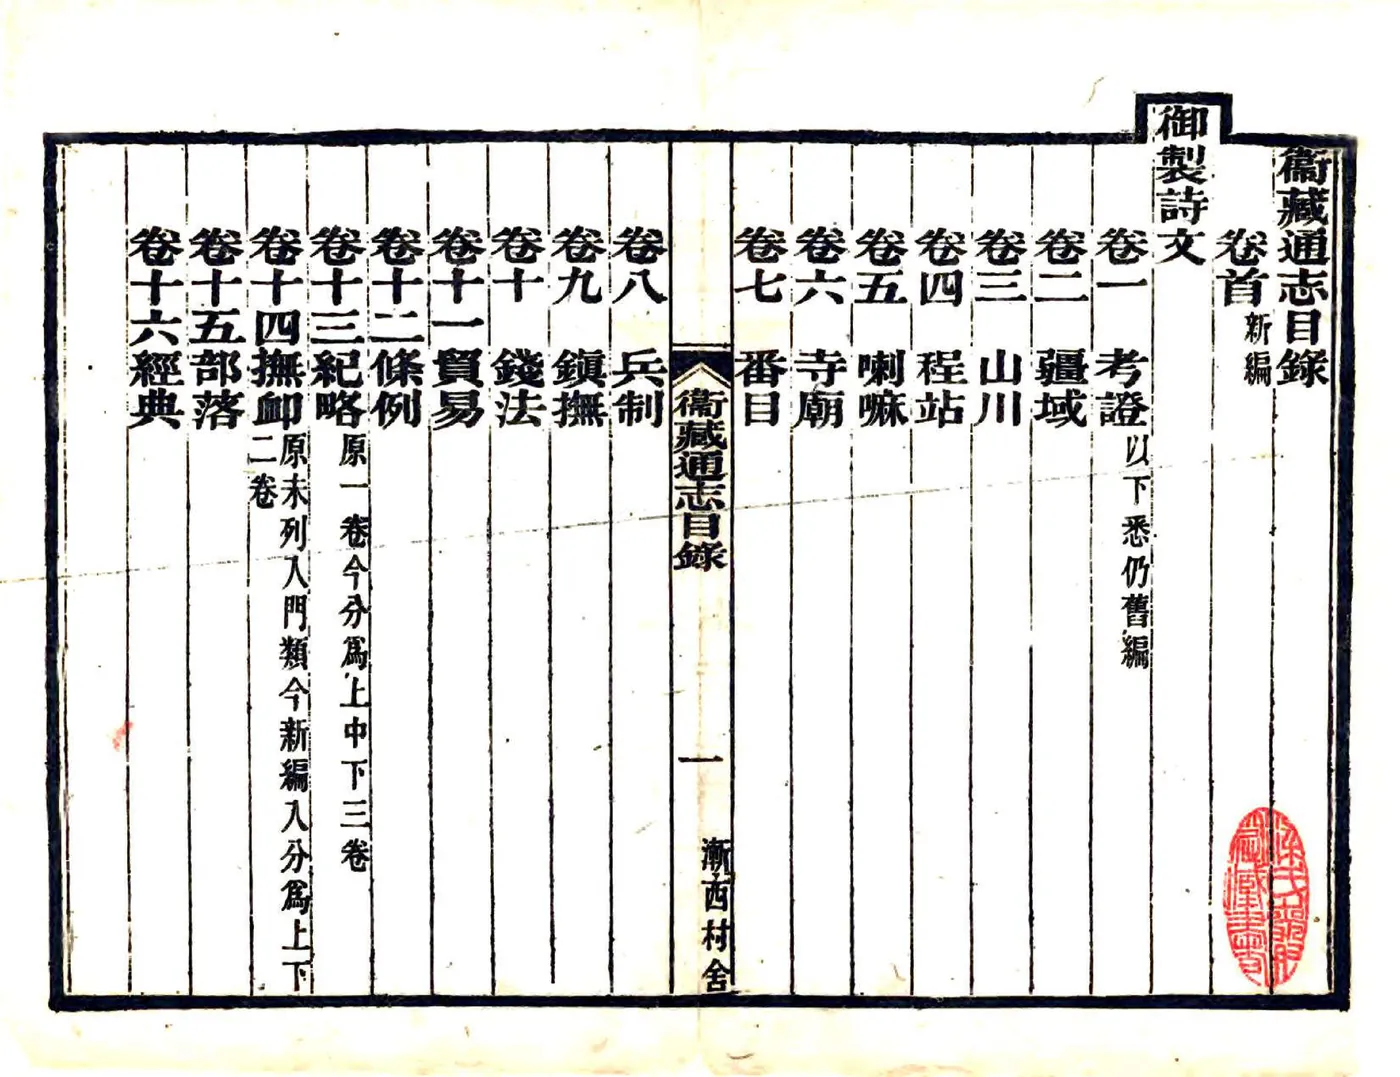 衞藏通志目錄
卷首新編
御製詩文
卷一 考證以下悉仍舊編
卷二 疆域
卷三 山川
卷四 程站
卷五 喇嘛
卷六 寺廟
卷七 番目
衞藏通志目錄 一 漸西村舍
卷八 兵制
卷九 鎭撫
卷十 錢法
卷十一貿易
卷十二條例
卷十三紀略原一卷今分爲上中下三卷
卷十四撫卹原未列入門類今新編入分爲上下
二卷
卷十五部落
卷十六經典